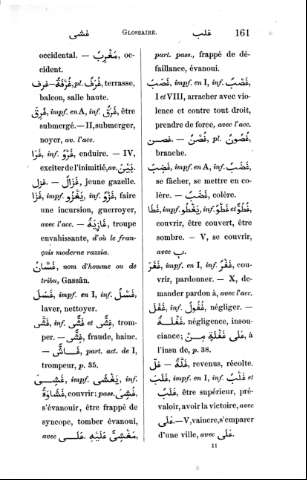 غشى
GLOSSAIRE.
غلب
161
occidental. — مَغْرِبٌ, oc-
cident.
غرف—غُرْفَةٌ, pl. غُرَفٌ, terrasse,
balcon, salle haute.
غَرِقَ, impf. en A, inf. غَرَقٌ, être
submergé.—II, submerger,
noyer, av. l'acc.
غَرَا, inf. غَرْوٌ, enduire. — IV,
exciter de l'inimitié, av. بَيْنَ.
غزل — غَزَالٌ, jeune gazelle.
غَزَا, impf. يَغْزُو, inf. غَزْوٌ, faire
une incursion, guerroyer,
avec l'acc. — غَازِيَةٌ, troupe
envahissante, d'où le fran-
çois moderne razzia.
غَسَّانُ, nom d'homme ou de
tribu, Gassân.
غَسَلَ, impf. en I, inf. غَسْلٌ,
laver, nettoyer.
غَشَّ, inf. غَشٌّ et غِشٌّ, trom-
per. — غِشٌّ, fraude, haine.
— غَاشٌّ, part. act. de I,
trompeur, p. 35.
غَشِىَ, impf. يَغْشَى, inf.
غِشَاوَةٌ, couvrir; pass. غُشِىَ,
s'évanouir, être frappé de
syncope, tomber évanoui,
avec عَلَى — مَغْشِىٌّ عَلَيْهِ,
part. pass., frappé de dé-
faillance, évanoui.
غَصَبَ, impf. en I, inf. غَصْبٌ,
I et VIII, arracher avec vio-
lence et contre tout droit,
prendre de force, avec l'acc.
غصن — غُصْنٌ, pl. غُصُونٌ,
branche.
غَضِبَ, impf. en A, inf. غَضَبٌ,
se fâcher, se mettre en co-
lère. — غَضَبٌ, colère.
غَطَا, impf. يَغْطُو, inf. غَطْوٌ et غُطُوٌّ,
couvrir, être couvert, être
sombre. — V, se couvrir,
avec بِ.
غَفَرَ, impf. en I, inf. غَفْرٌ, cou-
vrir, pardonner. — X, de-
mander pardon à, avec l'acc.
غَفَلَ, inf. غُفُولٌ, négliger. —
غَفْلَةٌ, négligence, insou-
ciance; عَلَى غَفْلَةٍ مِنْ, à
l'insu de, p. 38.
غل — غَلَّةٌ, revenus, récolte.
غَلَبَ, impf. en I, inf. غَلْبٌ et
غَلَبٌ, être supérieur, pré-
valoir, avoir la victoire, avec
عَلَى.—V, vaincre, s'emparer
d'une ville, avec عَلَى.
11